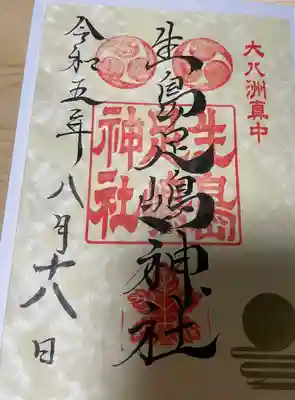 大八洲真中
生島足嶋神社
生島
神社
令和五年八月十八日